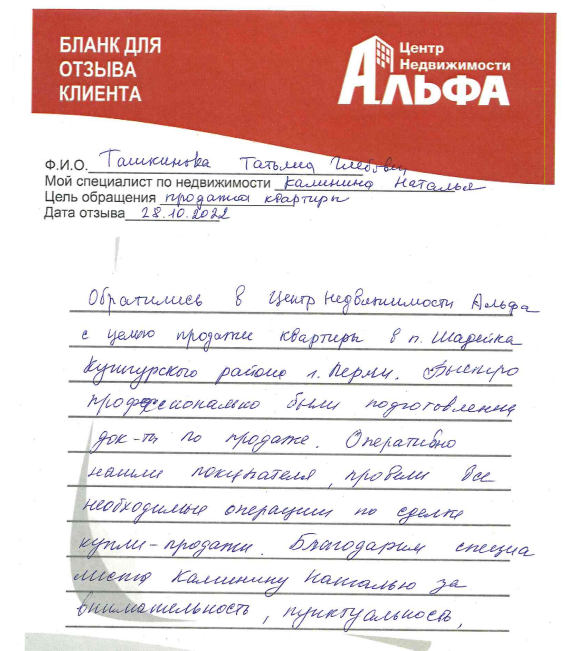 БЛАНК ДЛЯ
ОТЗЫВА
КЛИЕНТА
Центр
Недвижимости
АЛЬФА
Ф.И.О. Ташкинова Татьяна Глебовна
Мой специалист по недвижимости Калинина Наталья
Цель обращения продажа квартиры
Дата отзыва 28.10.2022
Обратились в Центр недвижимости Альфа
с целью продажи квартиры в п. Шадейка
Кунгурского района г. Перми. Быстро
профессионально были подготовлены
док-ты по продаже. Оперативно
нашли покупателя, провели все
необходимые операции по сделке
купли-продажи. Благодарим специа
листа Калинину Наталью за
внимательность, пунктуальность,